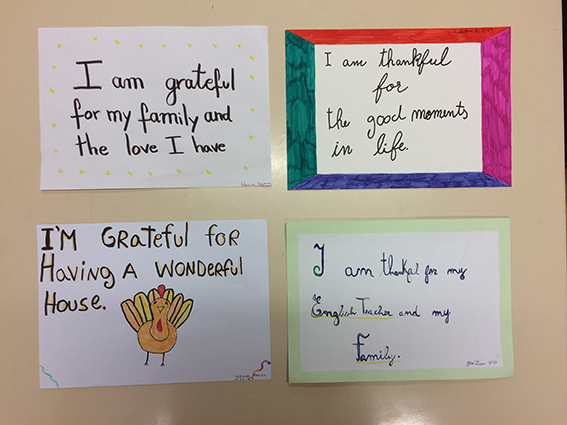 I am grateful
for my family and
the love I have
I am thankful
for
the good moments
in life.
I'M GRateful foR
Having A WONDERful
House.
I am thankful for my
English Teacher and my
Family.